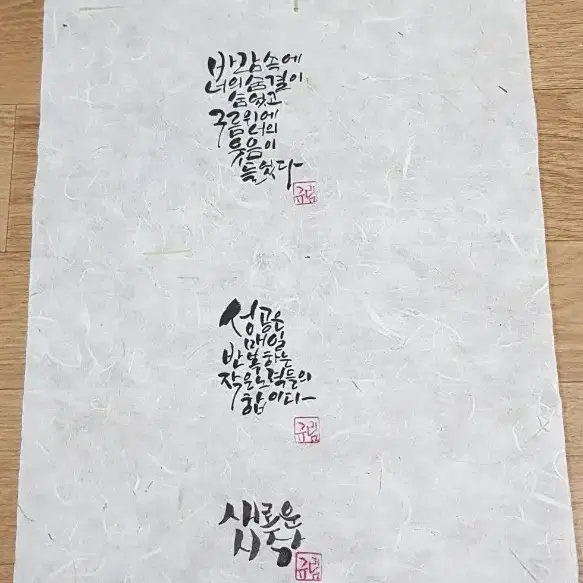 바람속에
너의 숨결이
숨었고
구름위에
너의
웃음이
들었다
성공은
매일
반복하는
작은노력들의
합이다
새로운
시작